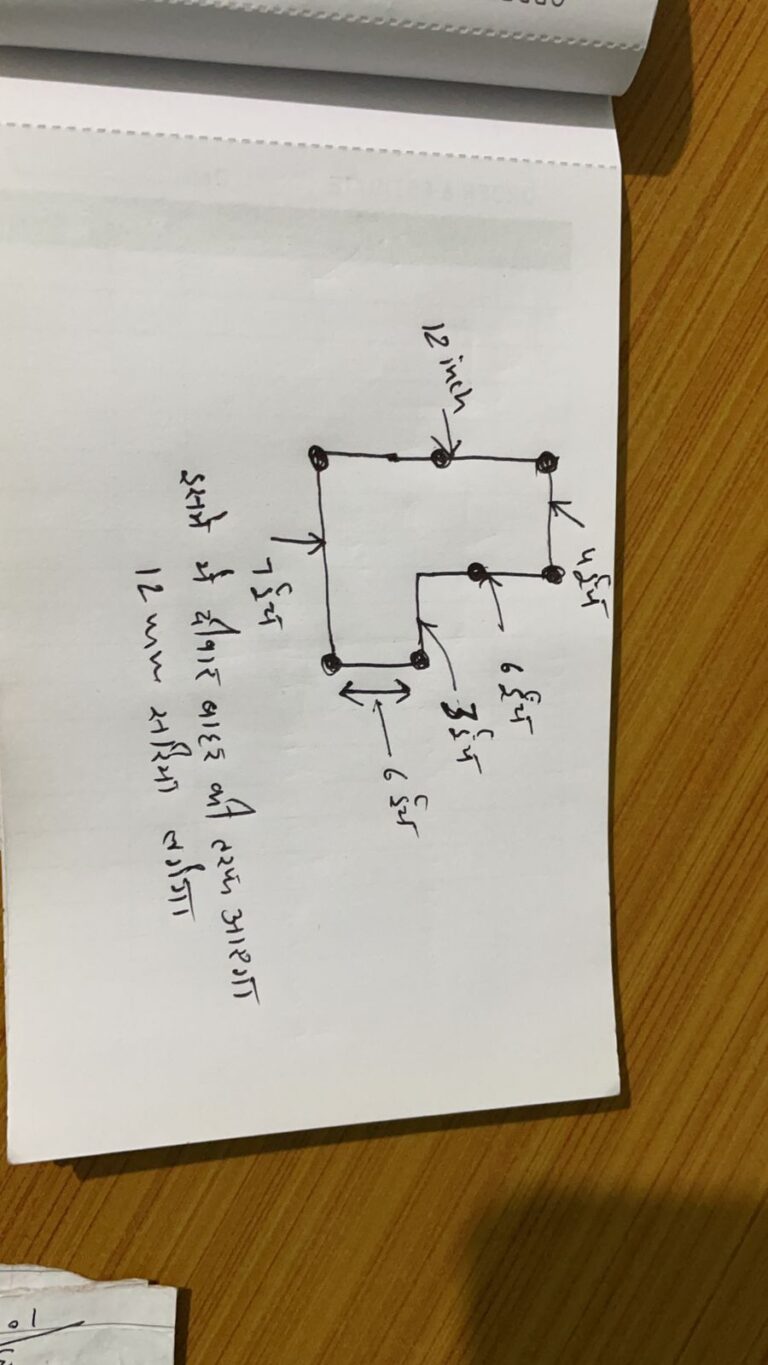 4 इंच
6 इंच
3 इंच
12 inch
6 इंच
7 इंच
इसमें से दीवार बाहर की तरफ आएगा
12 mm सरिया लगेगा